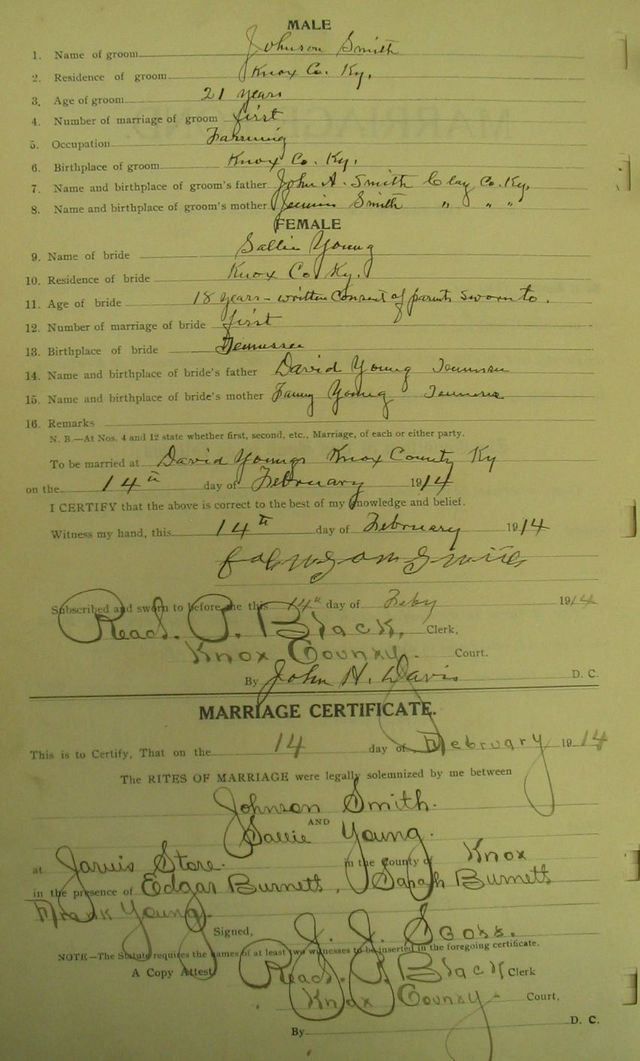 MALE
1. Name of groom Johnson Smith
2. Residence of groom Knox Co. Ky.
3. Age of groom 21 years
4. Number of marriage of groom first
5. Occupation Farming
6. Birthplace of groom Knox Co. Ky.
7. Name and birthplace of groom's father John A. Smith Clay Co. Ky.
8. Name and birthplace of groom's mother Smith " " "
FEMALE
9. Name of bride Sallie Young
10. Residence of bride Knox Co Ky.
11. Age of bride 18 years - written consent of parents sworn to.
12. Number of marriage of bride first
13. Birthplace of bride Tennessee
14. Name and birthplace of bride's father David Young Tennessee
15. Name and birthplace of bride's mother Fanny Young Tennessee
16. Remarks
N. B.—At Nos. 4 and 12 state whether first, second, etc., Marriage, of each or either party.
To be married at David Youngs Knox County Ky
on the 14th day of February 1914
I CERTIFY that the above is correct to the best of my knowledge and belief.
Witness my hand, this 14th day of February 1914
Subscribed and sworn to before me this 14th day of Feby 1914
Read. P. Black, Clerk,
Knox County. Court.
By John H. Davis D. C.
MARRIAGE CERTIFICATE.
This is to Certify, That on the 14 day of February 1914
The RITES OF MARRIAGE were legally solemnized by me between
Johnson Smith.
AND
Sallie Young.
at Jarvis Store. in the county of Knox
in the presence of Edgar Burnett, Sarah Burnett
Frank Young.
Signed, J. J.
NOTE—The Statute requires the names of at least two witnesses to be inserted in the foregoing certificate.
A Copy Attest Read. P. Black Clerk
Knox County. Court,
By D. C.